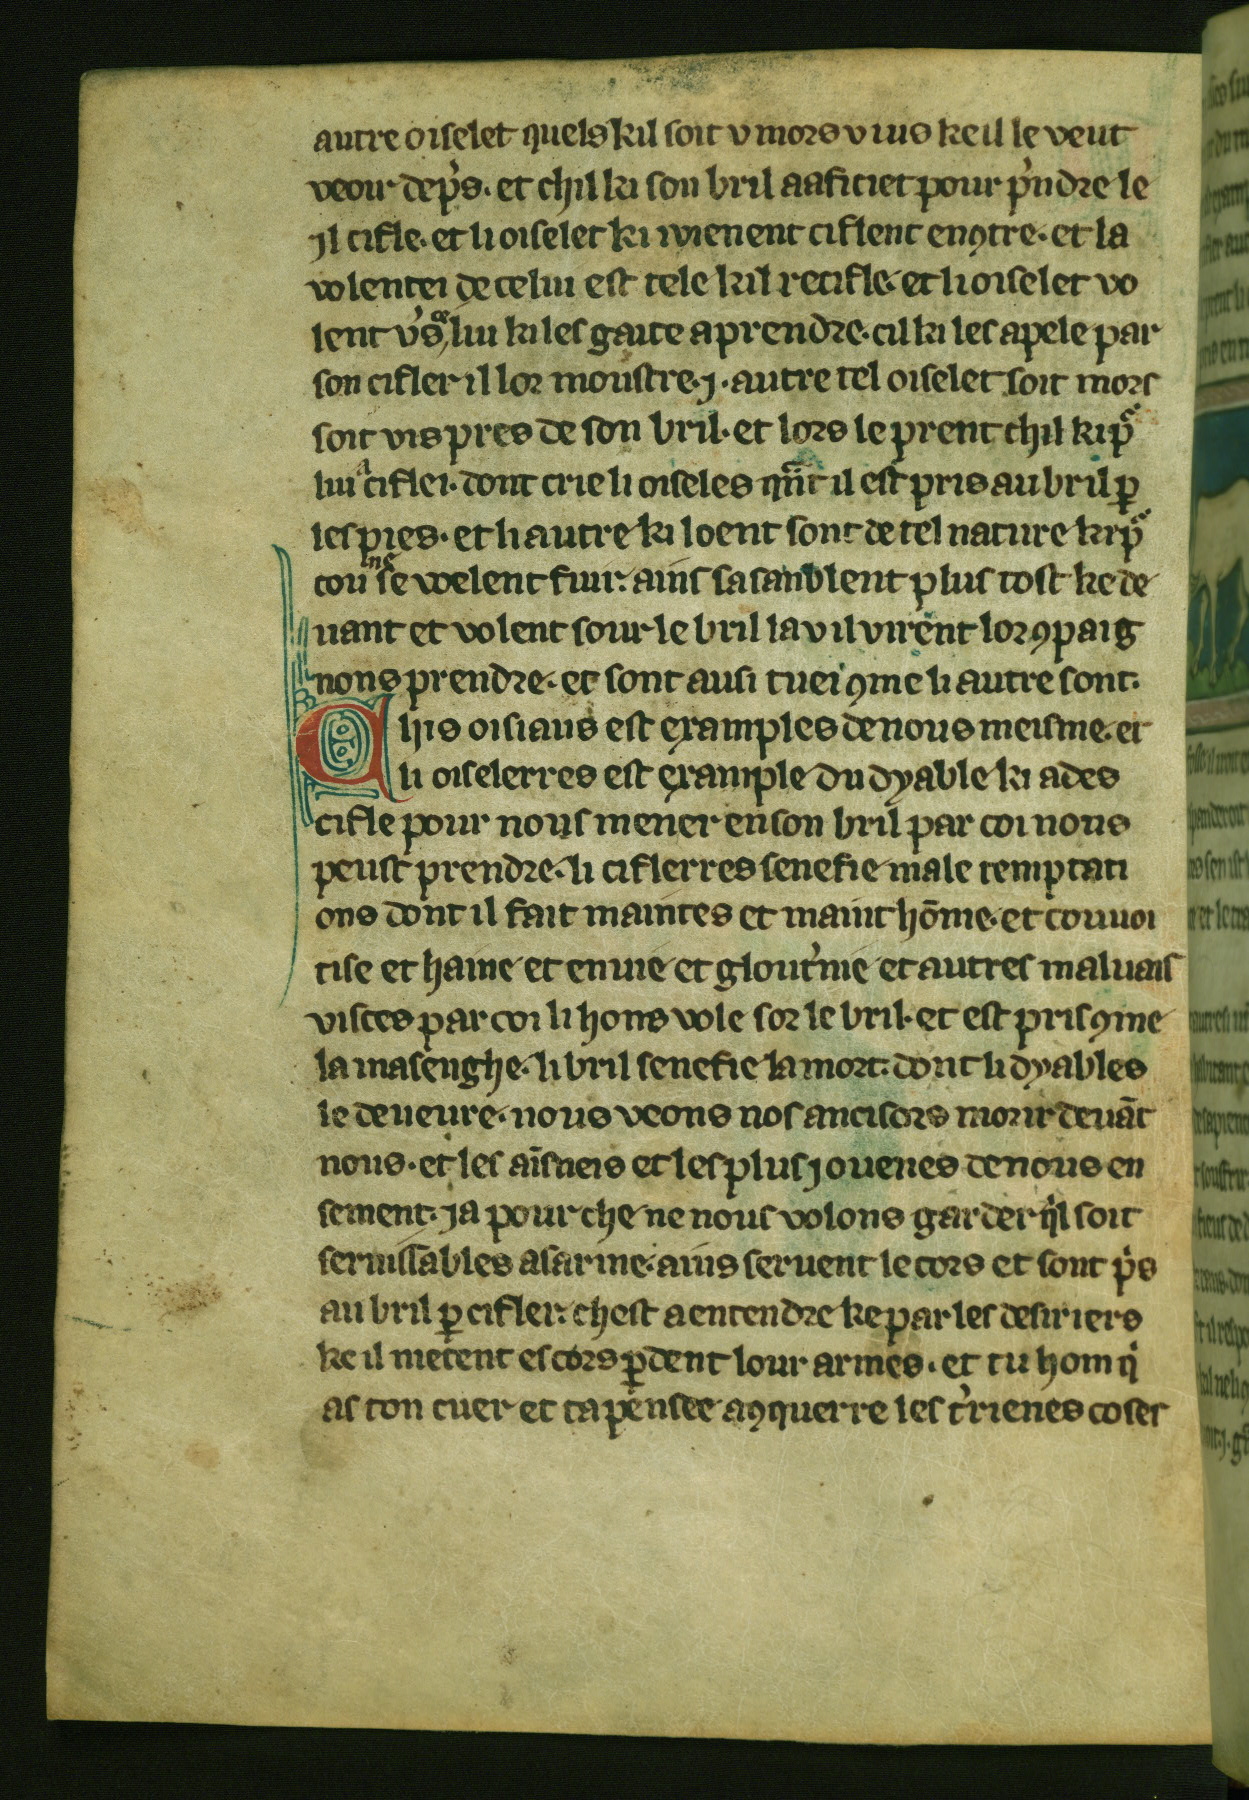 autre oiselet quels kil soit v mors v uis ke il le veut
veoir dep̾s. et chil ki son bril a aficiet pour p̾ndre le
jl cifle. et li oiselet ki i vienent ciflent enꝯtre. et la
volentei de celui est tele kil recifle. et li oiselet vo
lent v̾s lui ki les gaite a prendre. cil ki les apele par
son cifler il lor moustre .j. autre tel oiselet soit mors
soit vis pres de son bril. et lors le prent chil ki pͣ
lui a ciflei. dont crie li oiseles qͣnt il est pris au bril ꝑ
les pies. et li autre ki loent sont de tel nature ki pͣ
cou ne se voelent fuir. ains sasanblent plus tost ke de
uant et volent sour le bril la v il virent lor ꝯpaig
nons prendre. et sont ausi tuei ꝯme li autre sont.
Chis oisiaus est examples de nous meisme. et
li oiselerres est example du dyable ki ades
cifle pour nous mener en son bril par coi nous
peust prendre. li ciflerres senefie male temptati
ons dont il fait maintes et maint hōme. et couuoi
tise et haine et enuie et glout̾nie et autres maluais
visces par coi li hons vole sor le bril. et est pris ꝯme
la masenghe. li bril senefie la mort. dont li dyables
le deueure. nous veons nos ancisors morir deuāt
nous. et les aisneis et les plus jouenes de nous en
sement. ja pour che ne nous volons garder qͥl soit
seruissables a sarme. ains seruent le cors et sont pͥs
au bril ꝑ cifler. chest a entendre ke par les desiriers
ke il metent es cors ꝑdent lour armes. et tu hom qͥ
as ton cuer et ta pensee a ꝯquerre les t̾rienes coses